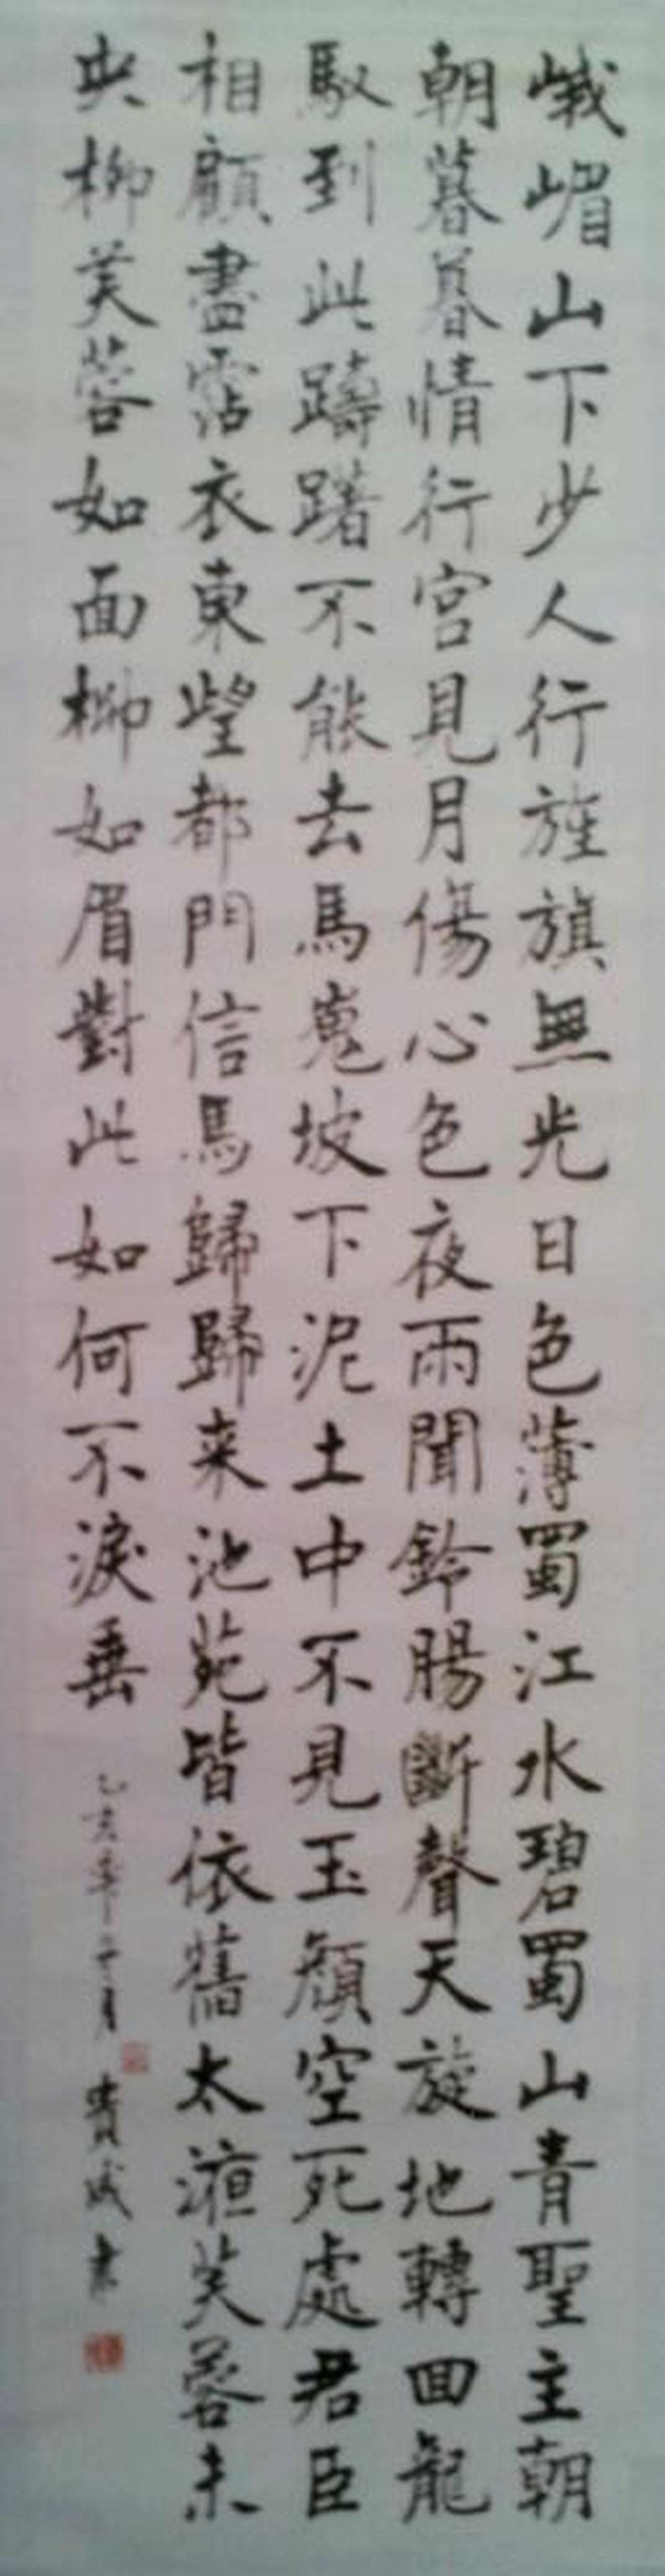 峨嵋山下少人行旌旗無光日色薄蜀江水碧蜀山青聖主朝
朝暮暮情行宮見月傷心色夜雨聞鈴腸斷聲天旋地轉回龍
馭到此躊躇不能去馬嵬坡下泥土中不見玉顏空死處君臣
相顧盡霑衣東望都門信馬歸歸来池苑皆依舊太液芙蓉未
央柳芙蓉如面柳如眉對此如何不淚垂
乙亥年十二月
書